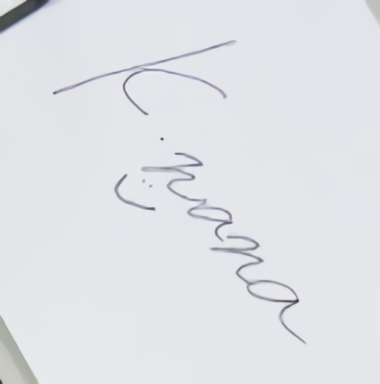 K. nana